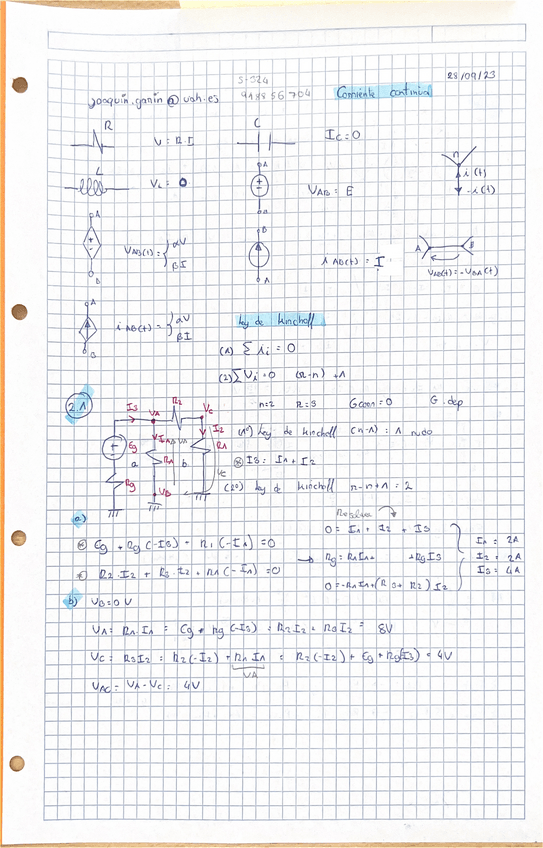 S-324
28/09/23
joaquin.ganin@uah.es
918856704
Corriente continua
R
V = R·I
C
Ic = 0
n
i(t)
-i(t)
L
VL = 0
A
B
VAB = E
A
B
VAB(t) = { αV
βI
B
A
i AB(t) = I
A B
VAB(t) = -VBA(t)
A
B
i AB(t) = { αV
βI
Ley de kirchoff
(1) Σ ii = 0
(2) Σ Vi = 0 (R-n) +1
2.1
n=2 R=3 Gcon=0 G.dep
I3 VA R2 VC
Eg a I1 R1 b I2
Rg VB
(1º) Ley de kirchoff (n-1) = 1 nudo
I3 = I1 + I2
(2º) Ley de kirchoff r-n+1 = 2
a)
Resolver
Eg + Rg (-I3) - R1 (-I1) = 0
R2·I2 + R3·I2 + R1 (-I1) = 0
0 = I1 + I2 + I3
Rg = R1I1+ +RgI3
0 = -R1I1+(R3+R2) I2
I1 = 2A
I2 = 2A
I3 = 4A
b) VB=0V
VA = R1·I1 = Eg + Rg (-I3) = R2I2 + R3I2 = 8V
VC = R3I2 = R2(-I2) + R1I1 = R2(-I2) + Eg + Rg(I3) = 4V
VA
VAC = VA - VC = 4V